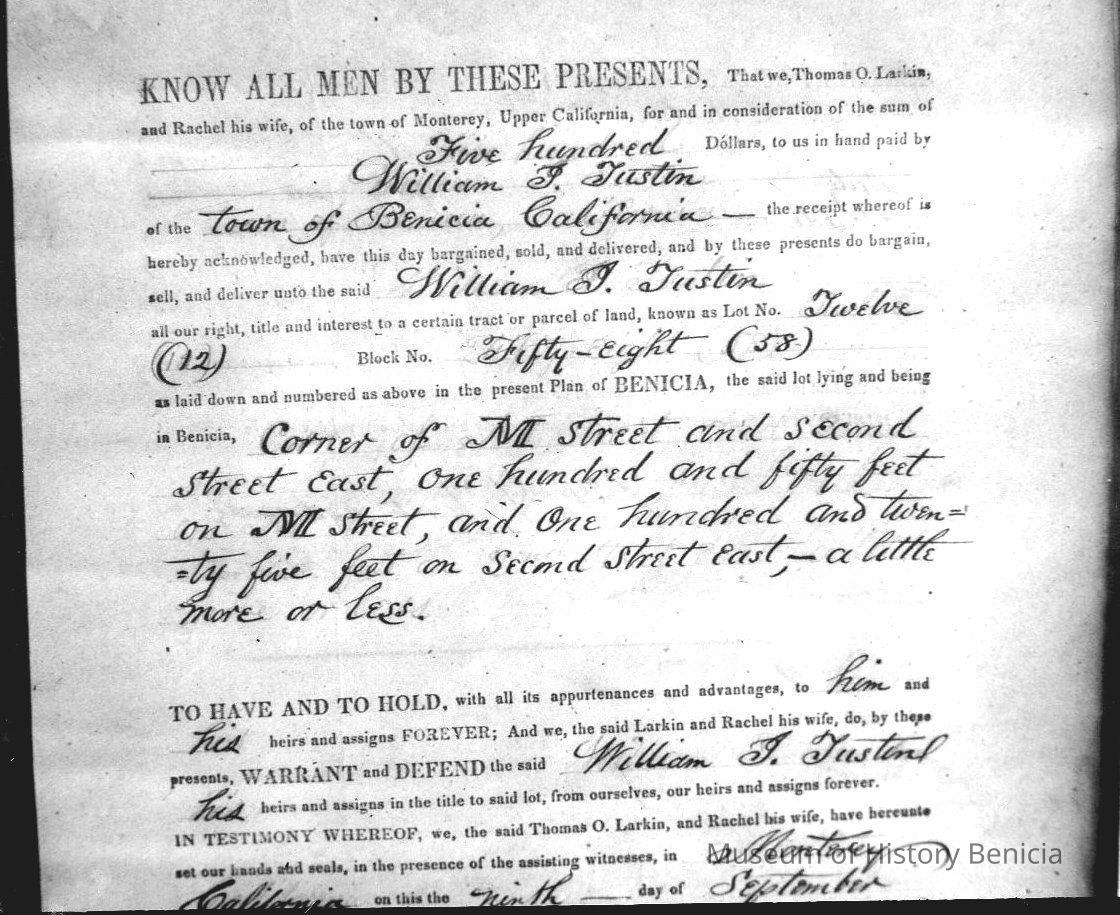 KNOW ALL MEN BY THESE PRESENTS, That we, Thomas O. Larkin,
and Rachel his wife, of the town of Monterey, Upper California, for and in consideration of the sum of
Five hundred Dollars, to us in hand paid by
William I. Tustin
of the town of Benicia California — the receipt whereof is
hereby acknowledged, have this day bargained, sold, and delivered, and by these presents do bargain,
sell, and deliver unto the said William I. Tustin
all our right, title and interest to a certain tract or parcel of land, known as Lot No. Twelve
(12) Block No. Fifty-eight (58)
as laid down and numbered as above in the present Plan of BENICIA, the said lot lying and being
in Benicia, Corner of M Street and Second
Street East, One hundred and fifty feet
on M Street, and One hundred and twen=
=ty five feet on Second Street East,— a little
more or less.
TO HAVE AND TO HOLD, with all its appurtenances and advantages, to him and
his heirs and assigns FOREVER; And we, the said Larkin and Rachel his wife, do, by these
presents, WARRANT and DEFEND the said William I. Tustin
his heirs and assigns in the title to said lot, from ourselves, our heirs and assigns forever.
IN TESTIMONY WHEREOF, we, the said Thomas O. Larkin, and Rachel his wife, have hereunto
set our hands and seals, in the presence of the assisting witnesses, in Monterey
Museum of History Benicia
California on this the ninth — day of September